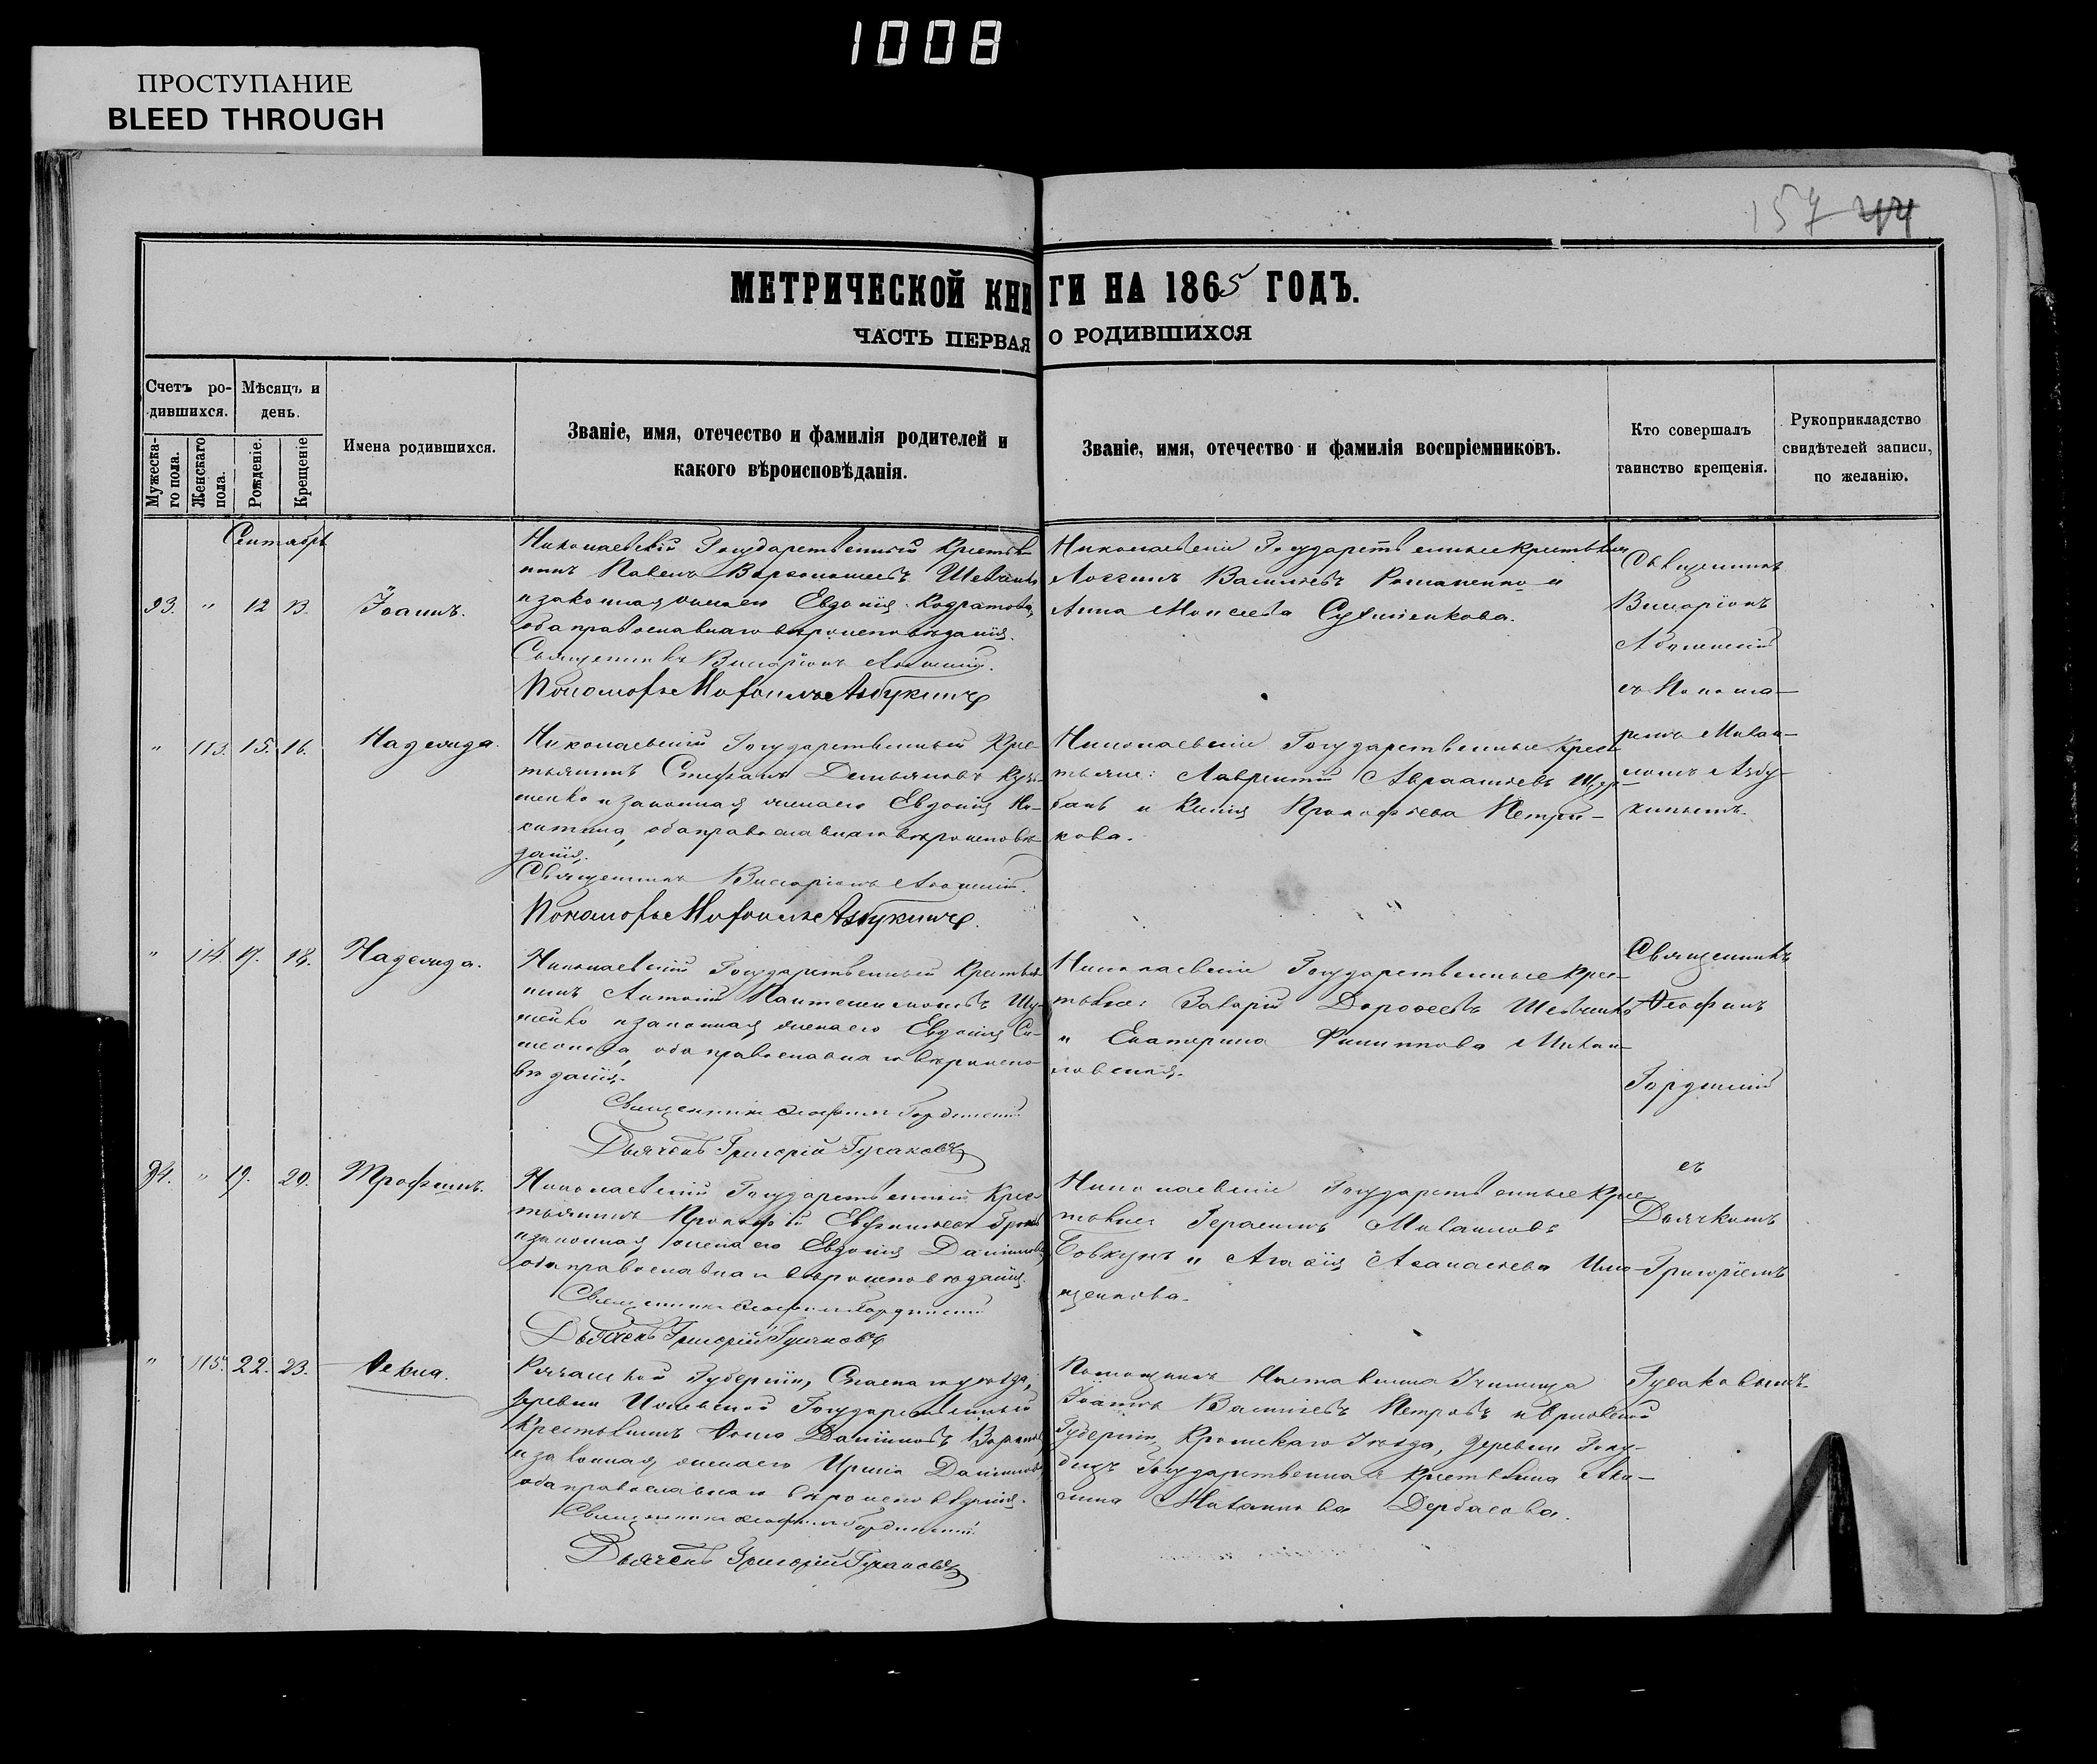 1008
ПРОСТУПАНИЕ
BLEED THROUGH
157 44
МЕТРИЧЕСКОЙ КНИГИ НА 1865 ГОДЪ.
ЧАСТЬ ПЕРВАЯ О РОДИВШИХСЯ
Счетъ ро-
дившихся.
Мужеска-
го пола.
Женскаго
пола.
Мѣсяцъ и
день.
Рожденіе.
Крещеніе
Имена родившихся.
Званіе, имя, отечество и фамилія родителей и
какого вѣроисповѣданія.
Званіе, имя, отечество и фамилія воспріемниковъ.
Кто совершалъ
таинство крещенія.
Рукоприкладство
свидѣтелей записи,
по желанію.
Сентябрь
93. " 12 13. Іоаннъ.
Николаевскій Государственный Крестья
нинъ Павелъ
и законная жена его Евдокія Кодратова,
оба православнаго вѣроисповѣданія.
Священникъ Висаріонъ
Пономарь Михаилъ Азбукинъ
Николаевскіе Государственные крестьяне
Логгинъ Васильевъ Романенко и
Анна Моисеева
Священникъ
Висаріонъ
съ Понома-
ремъ Михаи-
ломъ Азбу-
кинымъ.
" 113. 15. 16. Надежда.
Николаевскій Государственный Крес-
тьянинъ Стефанъ Демьяновъ Кузь-
менко и законная жена его Евдокія Ни-
китина, оба православнаго вѣроисповѣ-
данія.
Священникъ Висаріонъ
Пономарь Михаилъ Азбукинъ.
Николаевскіе Государственные Крес-
тьяне: Лаврентій Авраамьевъ Щер-
бань и Прокофьева Петри-
кова.
" 114. 17. 18. Надежда.
Николаевскій Государственный Крестья-
нинъ Антоній Пантелеимоновъ
и законная жена его Евдокія Си-
меонова, оба православнаго вѣроиспо-
вѣданія.
Священникъ Ѳеофилъ Гордынскій
Дьячекъ Григорій Гусаковъ
Николаевскіе Государственные Крес-
тьяне: Захарій Дороѳеевъ Шевченко
и Екатерина Филиппова Михаи-
ловская.
Священникъ
Ѳеофилъ
Гордынскій
съ
Дьячкомъ
Григоріемъ
Гусаковымъ.
94. " 19. 20. Трофимъ.
Николаевскій Государственный Крес-
тьянинъ Прокофій Евфимьевъ
и законная жена его Евдокія Даніилова,
оба православнаго вѣроисповѣданія.
Священникъ Ѳеофилъ Гордынскій
Дьячекъ Григорій Гусаковъ
Николаевскіе Государственные Крес-
тьяне: Герасимъ Михаиловъ
Бовкунъ и Агаѳія Аѳанасьева Ище-
щенкова.
" 115. 22. 23. Ѳекла.
Рязанской Губерніи, Спаскаго уѣзда,
деревни Государственный
Крестьянинъ Ѳома Даніиловъ
и законная жена его Ирина Даніилова,
оба православнаго вѣроисповѣданія.
Священникъ Ѳеофилъ Гордынскій
Дьячекъ Григорій Гусаковъ
Помощникъ Наставника Училища
Іоаннъ Васильевъ Петровъ и Орловской
Губерніи, Кромскаго Уѣзда, деревни Голу-
бицъ Государственная крестьянка Аку-
лина Михаилова Дербасова.